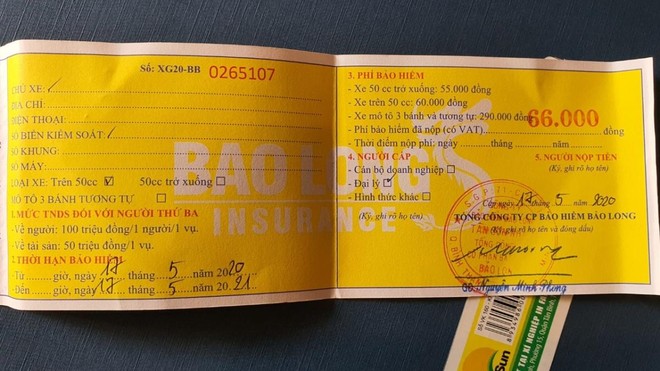 Số: XG20-BB 0265107
CHỦ XE:
ĐỊA CHỈ:
ĐIỆN THOẠI:
SỐ BIỂN KIỂM SOÁT:
SỐ KHUNG:
SỐ MÁY:
LOẠI XE: Trên 50cc 50cc trở xuống:
MÔ TÔ 3 BÁNH TƯƠNG TỰ
1.MỨC TNDS ĐỐI VỚI NGƯỜI THỨ BA
- Về người: 100 triệu đồng/1 người/1 vụ.
- Về tài sản: 50 triệu đồng/1 vụ.
2. THỜI HẠN BẢO HIỂM
Từ giờ, ngày 17 tháng 5 năm 2020
Đến giờ, ngày 17 tháng 5 năm 20.21
BAO LONG
INSURANCE
3. PHÍ BẢO HIỂM
- Xe 50 cc trở xuống: 55.000 đồng
- Xe trên 50 cc: 60.000 đồng
- Xe mô tô 3 bánh và tương tự: 290.000 đồng
66.000
- Phí bảo hiểm đã nộp (có VAT) đồng.
- Thời điểm nộp phí: ngày tháng năm
4. NGƯỜI CẤP
- Cán bộ doanh nghiệp
- Đại lý
- Hình thức khác
(Ký, ghi rõ họ tên)
5. NGƯỜI NỘP TIỀN
(Ký, ghi rõ họ tên)
Cấp ngày 17 tháng 5 năm 2020
TỔNG CÔNG TY CP BẢO HIỂM BẢO LONG
(Ký, ghi rõ họ tên và đóng dấu)
BẢO LONG
GĐ. Nguyễn Minh Phong
Sun